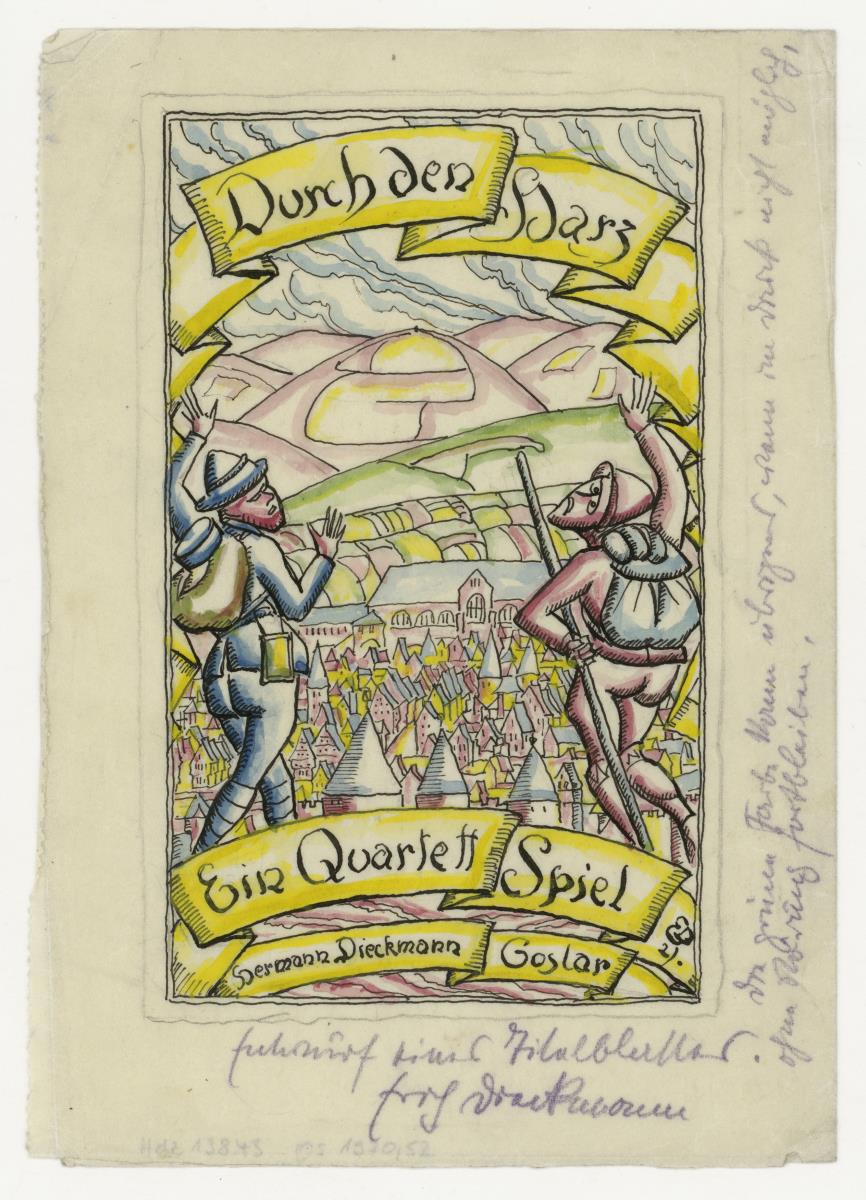 Durch den Harz
Ein Quartett Spiel
Hermann Dieckmann Goslar
Die grüne Farbe kann übrigens, wenn im Druck nicht möglich,
ohne Störung fortbleiben.
Entwurf eines Titelblattes.
Erich Dieckmann
Hdz 13843 1970,52